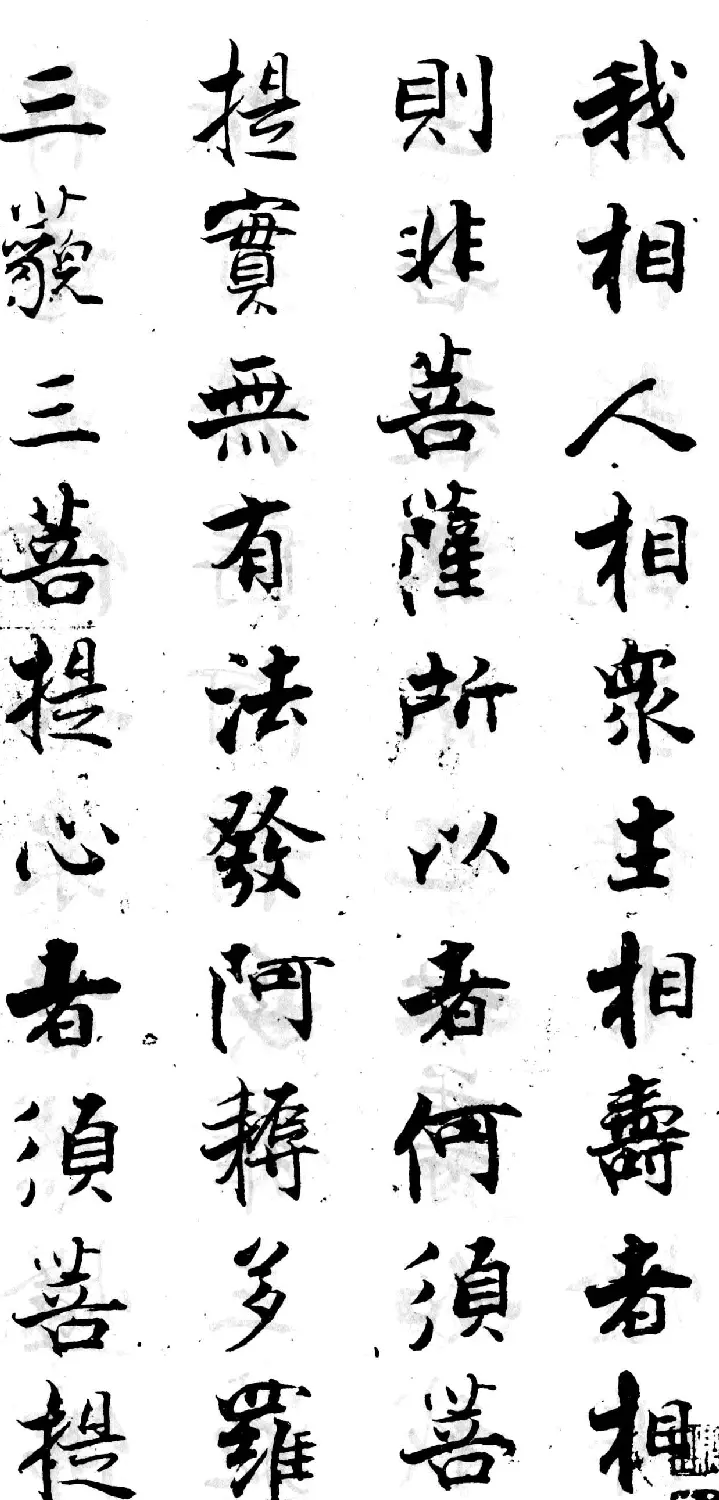 我相人相眾生相壽者相
則非菩薩所以者何須菩
提實無有法發阿耨多羅
三藐三菩提心者須菩提